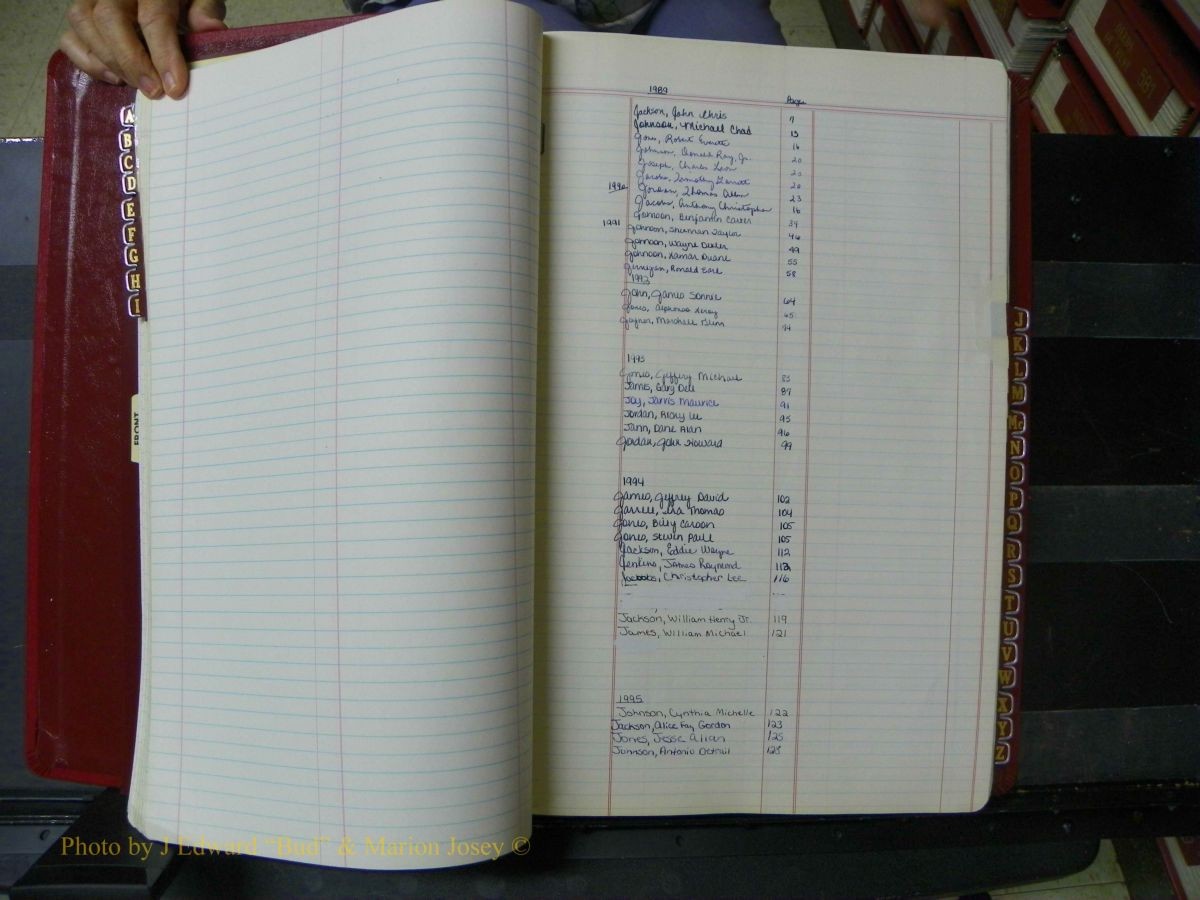 A
B
C
D
E
F
G
H
I
FRONT
1989 Page
Jackson, John Chris 7
Johnson, Michael Chad 13
Jones, Robert Everette 16
Johnson, Donald Ray, Jr. 20
Joseph, Charles Leon 20
Jacobs, Timothy Garrett 20
1990 Jordan, Thomas Allen 23
Jacobs, Anthony Christopher 16
Johnson, Benjamin Carter 34
1991 Johnson, Sherman Taylor 46
Johnson, Wayne Dexter 49
Johnson, Lamar Duane 55
Jernigan, Ronald Earl 58
1993
John, James Sonnie 64
Jones, Alphonso Leroy 65
Joyner, Marshall Glenn 74
1993
Jones, Jeffery Michael 83
James, Gary Dell 87
Joy, Jarvis Maurice 91
Jordan, Ricky Lee 95
Jann, Dane Alan 96
Jordan, John Howard 99
1994
James, Jeffrey David 102
Jarrell, Ira Thomas 104
Jones, Billy Carson 105
Jones, Steven Paul 105
Jackson, Eddie Wayne 112
Jenkins, James Raymond 113
Jacobs, Christopher Lee 116
Jackson, William Henry Jr. 119
James, William Michael 121
1995
Johnson, Cynthia Michelle 122
Jackson, Alice Fay Gordon 123
Jones, Jesse Allan 125
Johnson, Antonio Detrail 125
J
K
L
M
Mc
N
O
P
Q
R
S
T
U
V
W
X
Y
Z
581
Photo by J Edward "Bud" & Marion Josey ©